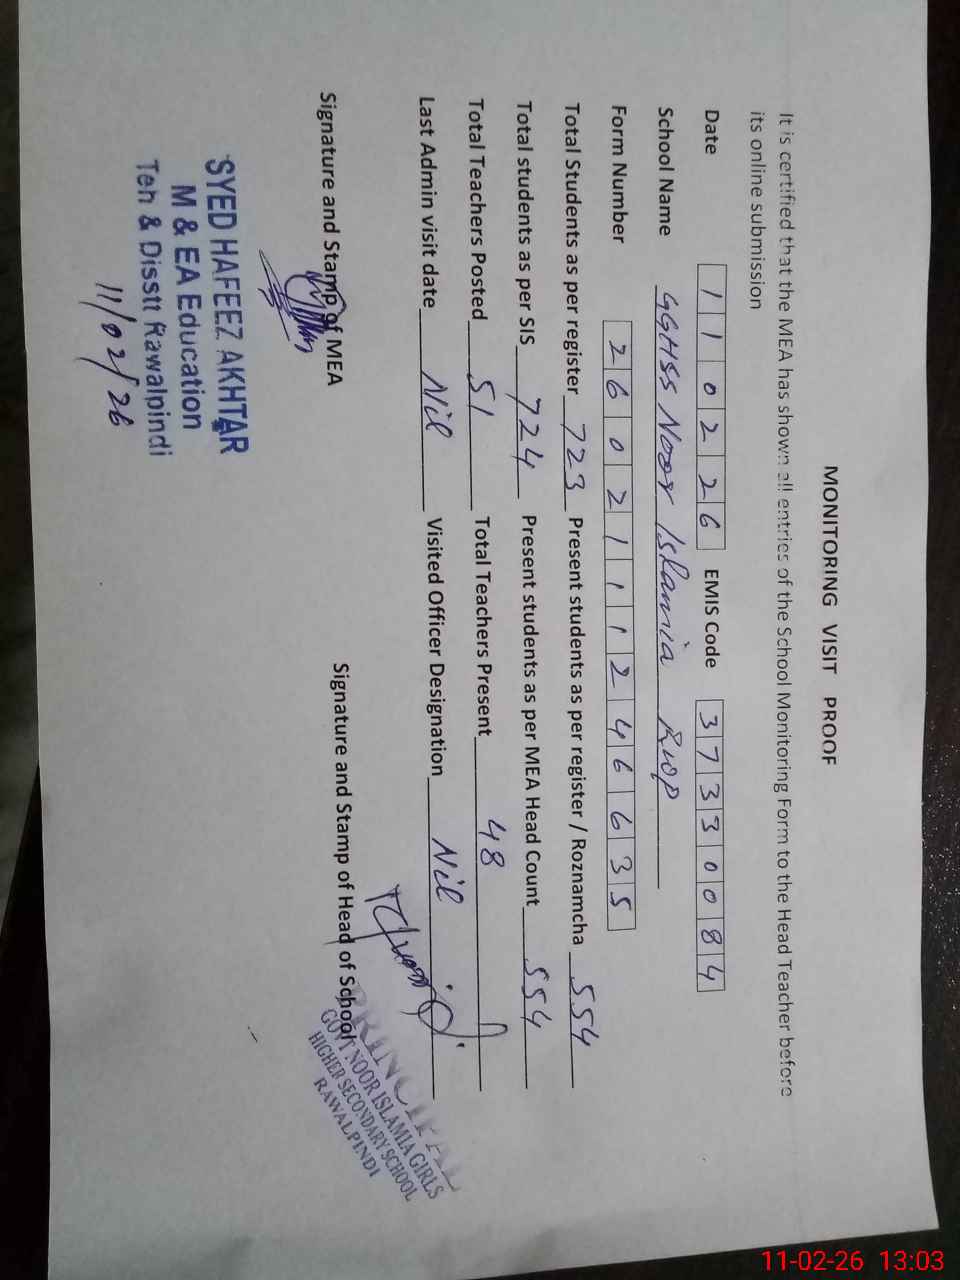 MONITORING VISIT PROOF
It is certified that the MEA has shown all entries of the School Monitoring Form to the Head Teacher before
its online submission
Date 110226 EMIS Code 37330084
School Name GGHSS Noor Islamia Rwp
Form Number 2602111246635
Total Students as per register 723 Present students as per register / Roznamcha 554
Total students as per SIS 724 Present students as per MEA Head Count 554
Total Teachers Posted 51 Total Teachers Present 48
Last Admin visit date Nil Visited Officer Designation Nil
Signature and Stamp of MEA Signature and Stamp of Head of School
SYED HAFEEZ AKHTAR
M & EA Education
Teh & Disstt Rawalpindi
11/02/26
PRINCIPAL
GOVT NOOR ISLAMIA GIRLS
HIGHER SECONDARY SCHOOL
RAWALPINDI
11-02-26 13:03